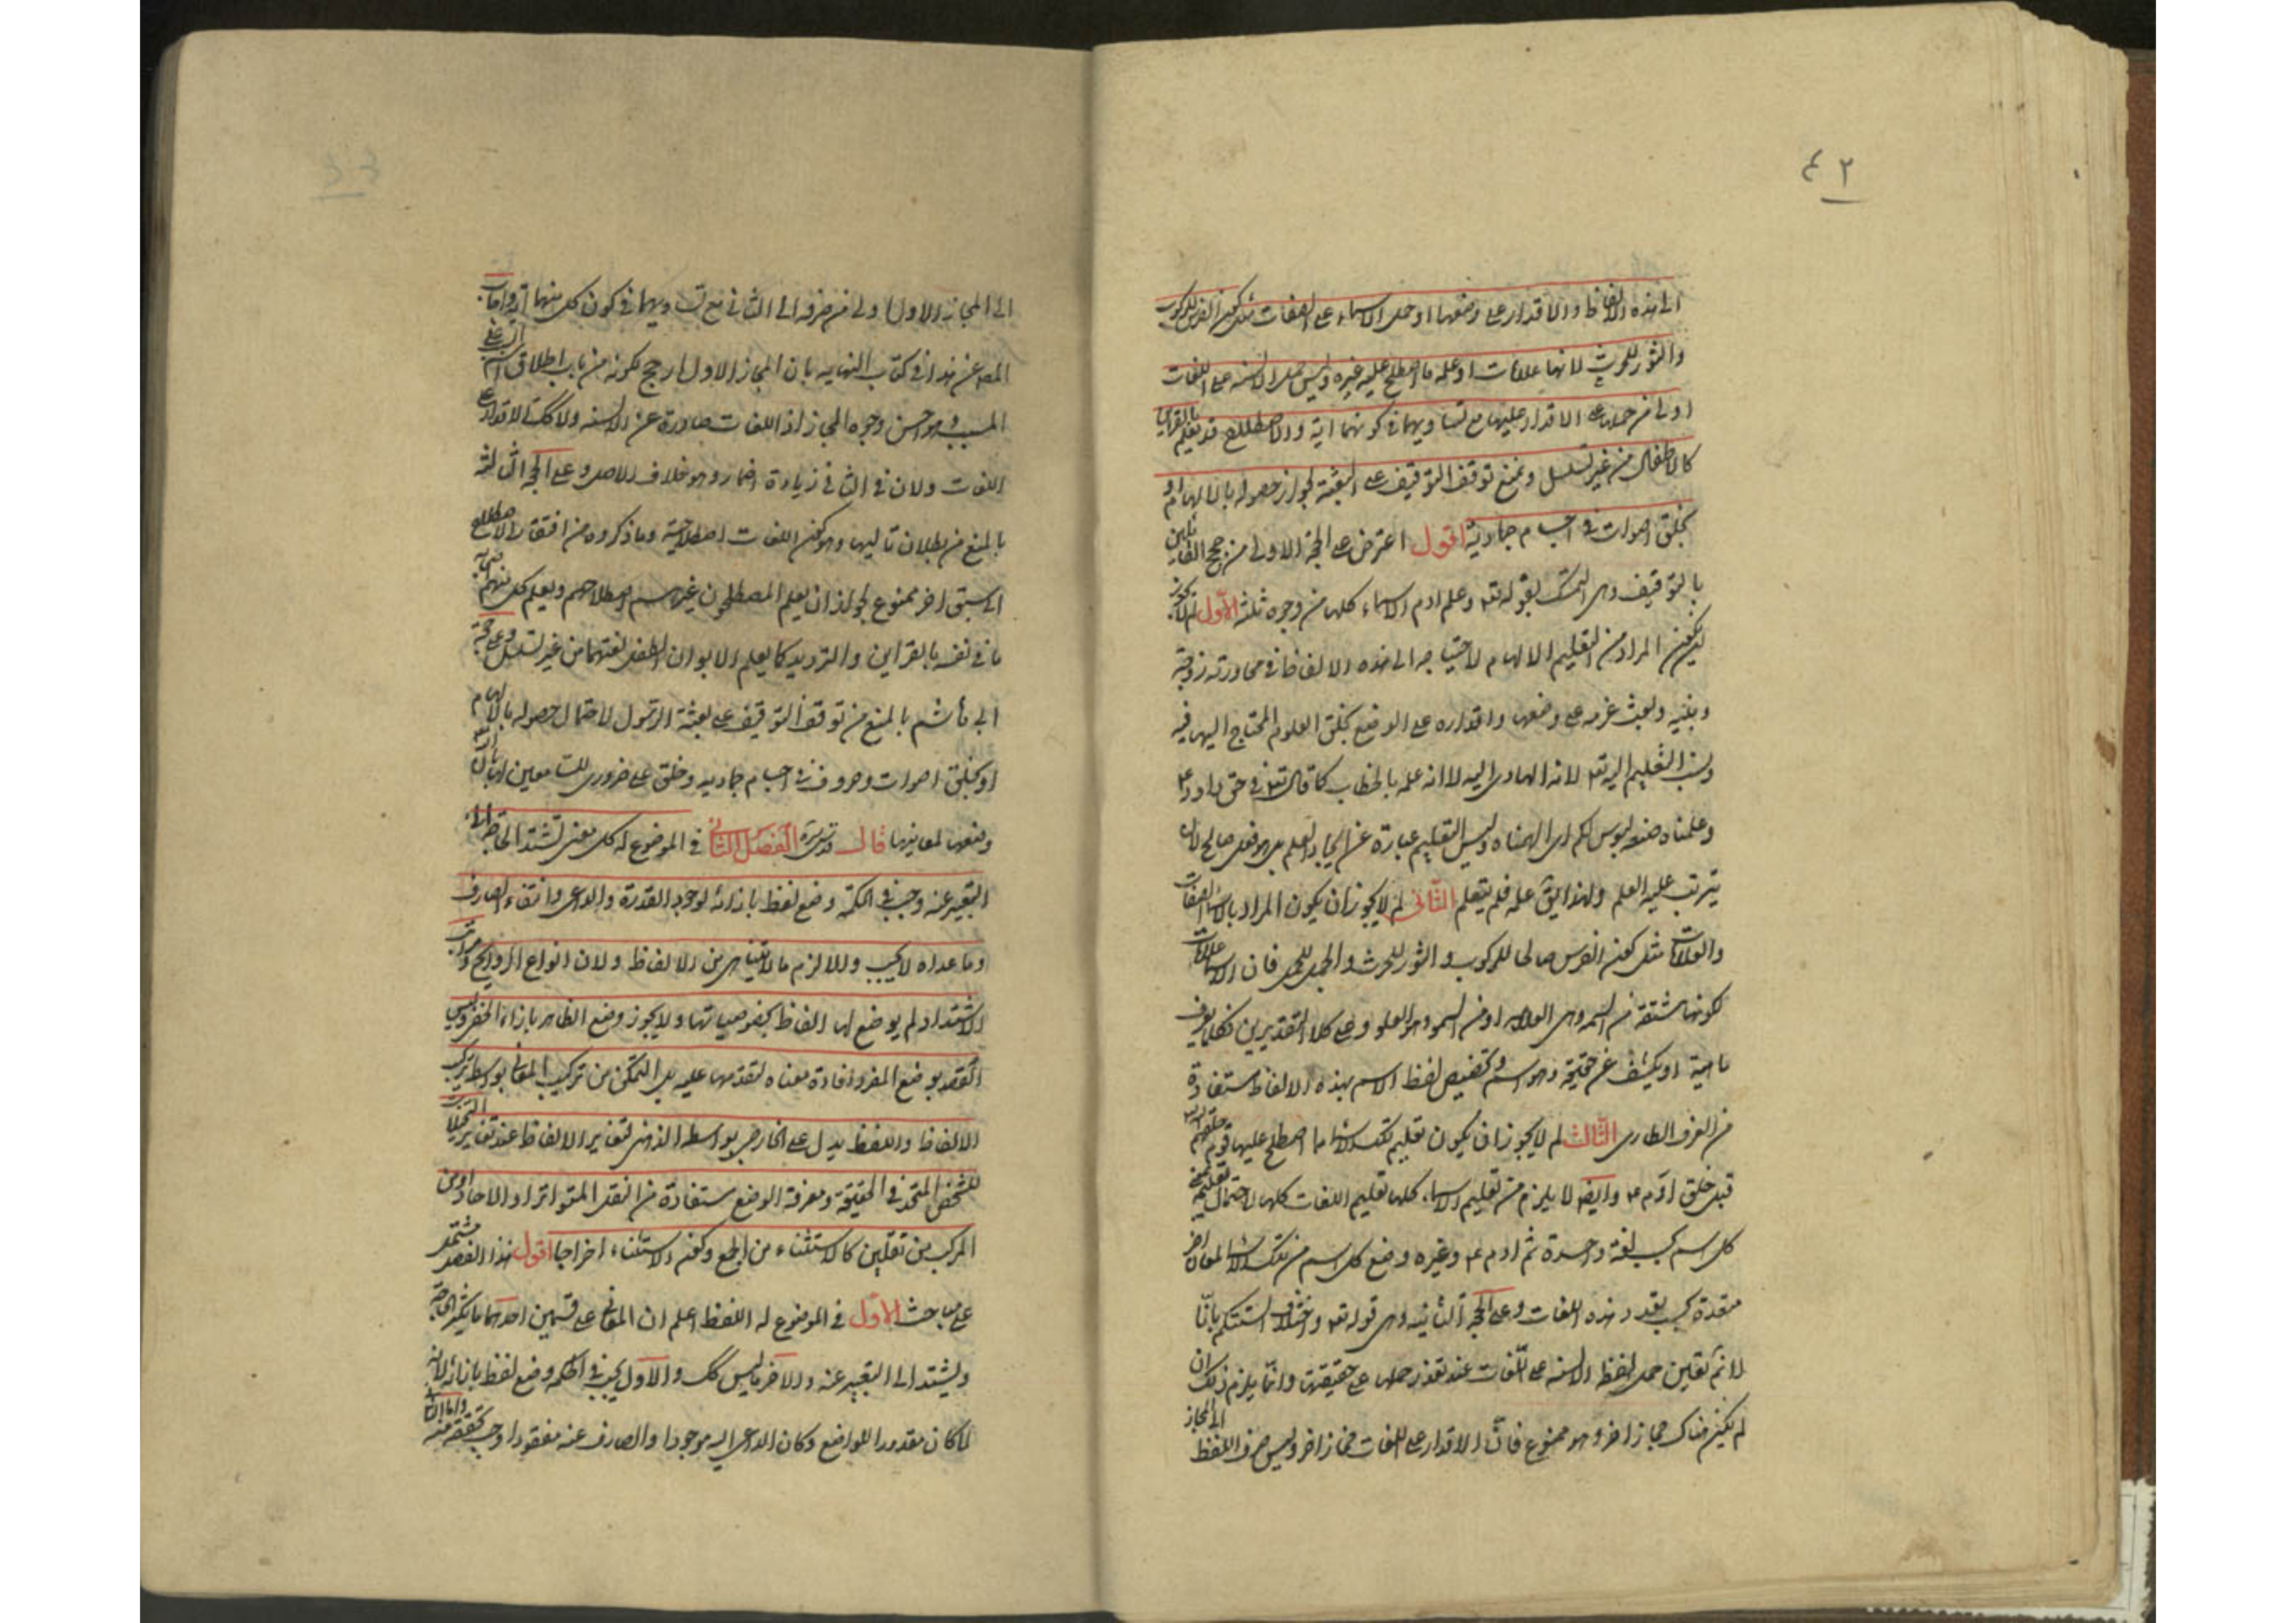 ٤٢
الى هذه الالفاظ والاقدار على وضعها او حمل الاسماء على الصفات مثل كون الفرس للركوب
والثور للحرث لانها علامات او علمه ما اصطلح عليه غيره وليس حمل الالسنة على اللغات
اولى من حملها على الاقدار عليها مع تساويهما في كونهما اية والاصطلاح قد يعلم بالقراين
كالاطفال من غير تسلسل ونمنع توقف التوقيف على البعثة لجواز حصوله بالالهام او
بخلق اصوات في اجسام جمادية اقول اعترض على الحجة الاولى من حجج القائلين
بالتوقيف وهى التمسك بقوله تع وعلم ادم الاسماء كلها من وجوه ثلثة الاول لم لا يجوز
ان يكون المراد من التعليم الالهام لاحتياجه الى هذه الالفاظ في محاورته زوجته
وبنيه وبعث عزمه على وضعها واقداره على الوضع بخلق العلوم المحتاج اليها فيه
ونسب التعليم اليه تع لانه الهادى اليه لا انه علمه بالخطاب كما قال تع في حق داود ع
وعلمناه صنعة لبوس لكم اى الهمناه وليس التعليم عبارة عن ايجاد العلم بل هو فعل صالح لان
يترتب عليه العلم ولهذا يق علمه فلم يتعلم الثانى لم لا يجوز ان يكون المراد بالاسماء الصفات
والعلامات مثل كون الفرس صالحا للركوب والثور للحرث والجمل للحمل فان الاسماء علامات
لكونها مشتقة من السمه وهى العلامه او من السمو وهو العلو وعلى كلا التقديرين فكلما يعرف
ماهية او يكشف عن حقيقة فهو اسم وتخصيص لفظ الاسم بهذه الالفاظ مستفادة
من العرف الطارى الثالث لم لا يجوز ان يكون تعليم تلك الاسماء ما اصطلح عليها قوم خلقهم الله
قبل خلق آدم ع وايضا لا يلزم من تعليم الاسماء كلها تعليم اللغات كلها لاحتمال تعليمه
كل اسم بحسب لغة واحدة ثم ادم ع وغيره وضع كل اسم من تلك الاسماء لمعان اخر
متعددة بحسب تعدد هذه اللغات وعلى الحجة الثانيه وهى قوله تع واختلاف السنتكم بانا
لا نم تعين حمل لفظ الالسنه على اللغات عند تعذر حملها على حقيقتها وانما يلزم ذلك ان
لم يكن هناك مجاز اخر وهو ممنوع فان الاقدار على اللغات مجاز اخر وليس صرف اللفظ الى المجاز
الى المجاز الاول اولى من صرفه الى الثانى مع تساويهما في كون كل منهما آية واجاب
المص عن هذا في كتاب النهايه بان المجاز الاول ارجح لكونه من باب اطلاق اسم السبب على
المسبب وهو احسن وجوه المجاز اذ اللغات صادرة عن الالسنه ولا كك الاقدار على
اللغات ولان في الثانى زيادة اضمار وهو خلاف الاصل وعلى الحجة الثالثة
بالمنع من بطلان تاليها وهو كون اللغات اصطلاحية وما ذكروه من افتقار الاصطلاح
الى سبق اخر ممنوع لجواز ان يعلم المصطلحون غيرهم اصطلاحهم ويعلم كل منهم صاحبه
ما في نفسه بالقراين والترديد كما يعلم الابوان الطفل لغتهما من غير تسلسل وعلى حجة
ابى هاشم بالمنع من توقف التوقيف على بعثة الرسول لاحتمال حصوله بالالهام
او بخلق اصوات وحروف في اجسام جماديه وخلق علم ضرورى للسامعين لها بان الله
وضعها لمعانيها قال قدس سره الفصل الثانى في الموضوع له كل معنى تشتد الحاجة الى
التعبير عنه وجب في الحكمة وضع لفظ بازائه لوجود القدرة والداعى وانتفاء الصارف
وما عداه لا يجب والا لزم ما لا يتناهى من الالفاظ ولان انواع الروايح ومراتب
الاشتداد لم يوضع لها الفاظ بخصوصياتها ولا يجوز وضع الظاهر بازاء الخفى وليس
القصد بوضع المفرد افادة معناه لتقدمها عليه بل التمكن من تركيب المعانى بواسطة تركيب
الالفاظ واللفظ يدل على الخارجى بواسطه الذهنى لتغاير الالفاظ عند تغاير التخيلات
للشخص المتحد في الحقيقة ومعرفة الوضع مستفادة من النقل المتواتر او الاحاد او من
المركب من نقلين كالاستثناء من الجمع وكون الاستثناء اخراجا اقول هذا الفصل مشتمل
على مباحث الاول في الموضوع له اللفظ اعلم ان المعانى على قسمين احدهما ما يكثر الحاجة
ويشتد الى التعبير عنه والاخر ما ليس كك والاول يجب في الحكمه وضع لفظ بازائه لانه
لما كان مقدورا للواضع وكان الداعى اليه موجودا والصارف عنه مفقودا وجب تحققه منه واما الثانى